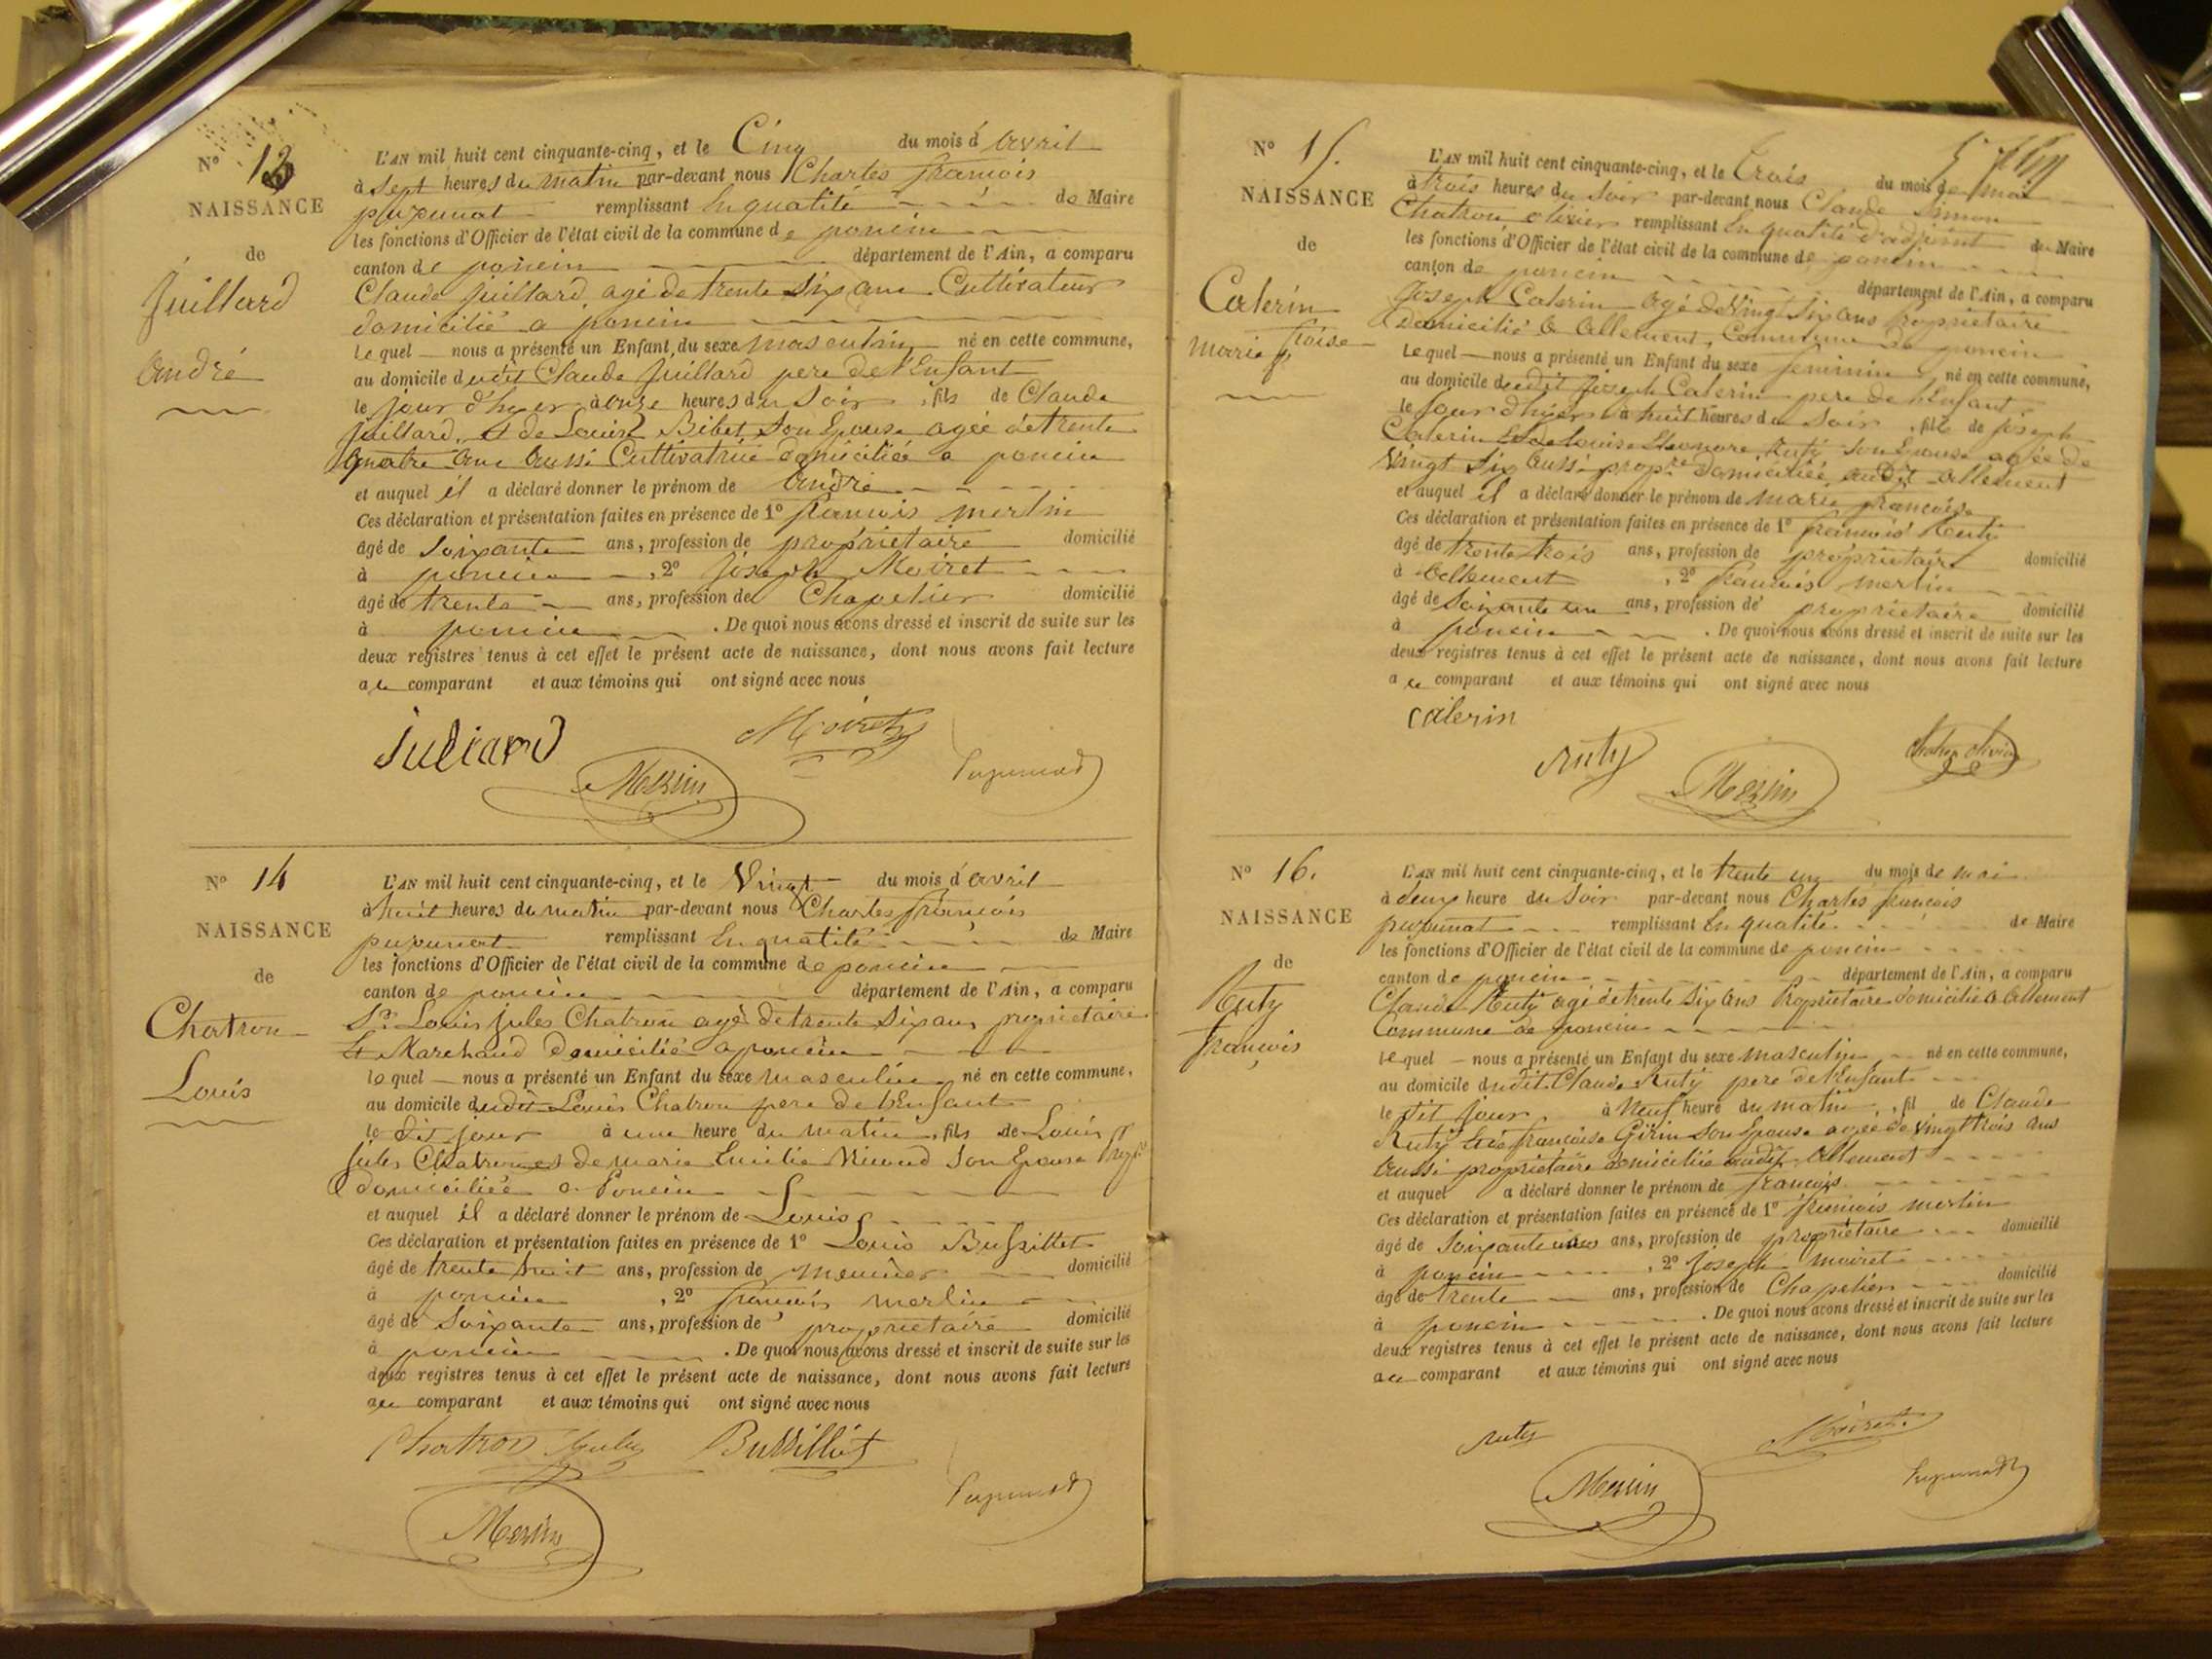 N° 13
NAISSANCE
de
Juillard
André
L'AN mil huit cent cinquante-cinq, et le Cinq du mois d'avril
à Sept heures du matin par-devant nous Charles françois
puxunat remplissant En qualité de Maire
les fonctions d'Officier de l'état civil de la commune de poncin
canton de poncin département de l'Ain, a comparu
Claude Juillard agé de trente Six ans Cultivateur
domicilié a poncin
Lequel nous a présenté un Enfant du sexe masculin né en cette commune,
au domicile dudit Claude Juillard pere de l'Enfant
le jour d'hyer à onze heures du Soir, fils de Claude
Juillard, et de Louise Bibet Son Epouse agée de trente
quatre ans aussi Cultivatrice domiciliée a poncin
et auquel il a déclaré donner le prénom de André
Ces déclaration et présentation faites en présence de 1° françois merlin
âgé de Soixante ans, profession de propriétaire domicilié
à poncin, 2° Joseph Moiret
âgé de trente ans, profession de Chapelier domicilié
à poncin . De quoi nous avons dressé et inscrit de suite sur les
deux registres tenus à cet effet le présent acte de naissance, dont nous avons fait lecture
au comparant et aux témoins qui ont signé avec nous
Juliard Moiret
Merlin puxunat
N° 14
NAISSANCE
de
Chatron
Louis
L'AN mil huit cent cinquante-cinq, et le Vingt du mois d'avril
à huit heures du matin par-devant nous Charles françois
puxunat remplissant En qualité de Maire
les fonctions d'Officier de l'état civil de la commune de poncin
canton de poncin département de l'Ain, a comparu
Sr. Louis Jules Chatron agé de trente Six ans propriétaire
Et Marchand domicilié a poncin
lequel nous a présenté un Enfant du sexe masculin né en cette commune,
au domicile dudit Louis Chatron pere de l'Enfant
le dit jour à une heure du matin, fils de Louis
Jules Chatron et de marie Emilie Son Epouse
domiciliée a Poncin
et auquel il a déclaré donner le prénom de Louis
Ces déclaration et présentation faites en présence de 1° Louis Bussillet
âgé de trente huit ans, profession de menuier domicilié
à poncin, 2° françois merlin
âgé de Soixante ans, profession de propriétaire domicilié
à poncin . De quoi nous avons dressé et inscrit de suite sur les
deux registres tenus à cet effet le présent acte de naissance, dont nous avons fait lecture
au comparant et aux témoins qui ont signé avec nous
Chatron Jules Bussillet
Merlin puxunat
N° 15.
NAISSANCE
de
Calerin
marie fcoise
L'AN mil huit cent cinquante-cinq, et le Trois du mois de mai
à trois heures du Soir par-devant nous Claude Simon
Chatron olivier remplissant En qualité d'adjoint de Maire
les fonctions d'Officier de l'état civil de la commune de poncin
canton de poncin département de l'Ain, a comparu
Joseph Calerin agé de Vingt Six ans propriétaire
Domicilié a allement, Commune de poncin
Lequel nous a présenté un Enfant du sexe feminin né en cette commune,
au domicile dudit Joseph Calerin pere de l'Enfant
le jour d'hier à huit heures du Soir, fille de Joseph
Calerin Et de Louise Eleonore Ruty Son Epouse agée de
Vingt Six aussi propre domiciliée audit allement
et auquel il a déclaré donner le prénom de marie françoise
Ces déclaration et présentation faites en présence de 1° françois Ruty
âgé de trente trois ans, profession de propriétaire domicilié
à allement, 2° francois merlin
âgé de Soixante un ans, profession de propriétaire domicilié
à poncin . De quoi nous avons dressé et inscrit de suite sur les
deux registres tenus à cet effet le présent acte de naissance, dont nous avons fait lecture
au comparant et aux témoins qui ont signé avec nous
calerin
Ruty Merlin Chatron olivier
N° 16.
NAISSANCE
de
Ruty
françois
L'AN mil huit cent cinquante-cinq, et le trente un du mois de mai
à deux heure du Soir par-devant nous Charles françois
puxunat remplissant En qualité de Maire
les fonctions d'Officier de l'état civil de la commune de poncin
canton de poncin département de l'Ain, a comparu
Claude Ruty agé de trente Six ans Propriétaire domicilié a allement
Commune de poncin
lequel nous a présenté un Enfant du sexe masculin né en cette commune,
au domicile dudit Claude Ruty pere de l'Enfant
le dit jour, à Neuf heure du matin, fil de Claude
Ruty Et de françoise Girin Son Epouse agée de vingt trois ans
aussi propriétaire domiciliée audit allement
et auquel a déclaré donner le prénom de françois
Ces déclaration et présentation faites en présence de 1° françois merlin
âgé de Soixante un ans, profession de propriétaire domicilié
à poncin, 2° Joseph moiret
âgé de trente ans, profession de Chapelier domicilié
à poncin . De quoi nous avons dressé et inscrit de suite sur les
deux registres tenus à cet effet le présent acte de naissance, dont nous avons fait lecture
au comparant et aux témoins qui ont signé avec nous
Ruty Moiret
Merlin puxunat